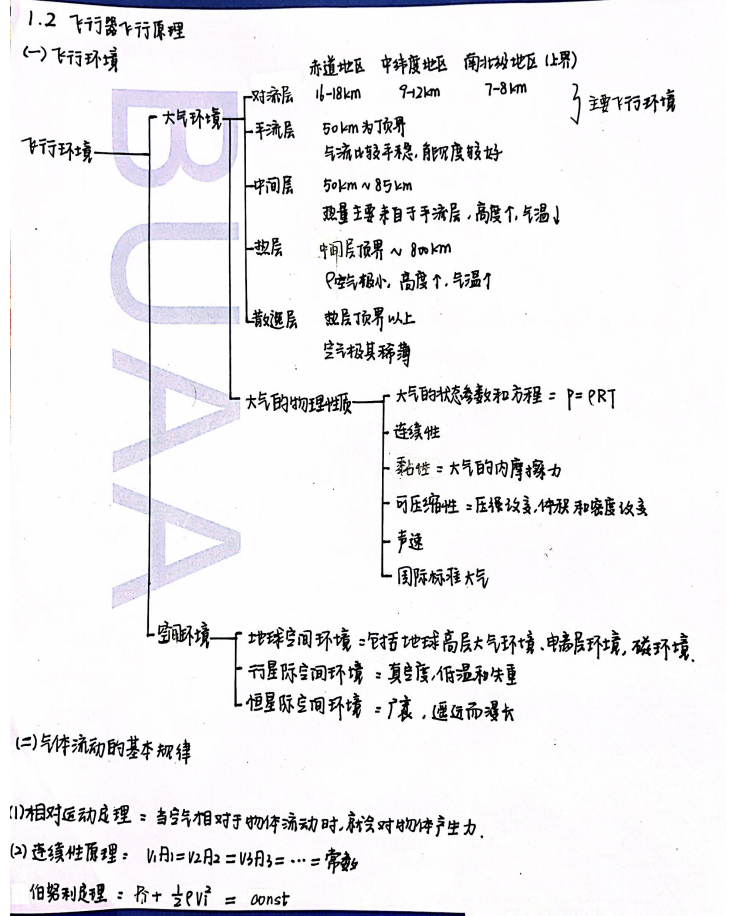 1.2 飞行器飞行原理
(一) 飞行环境
赤道地区 中纬度地区 南北极地区 (上界)
对流层 16-18km 9-12km 7-8km } 主要飞行环境
大气环境
平流层 50km为顶界
飞行环境
气流比较平稳,能见度较好
中间层 50km ~ 85km
热量主要来自于平流层,高度↑,气温↓
热层 中间层顶界 ~ 800km
ρ空气极小,高度↑,气温↑
散逸层 热层顶界以上
空气极其稀薄
大气的物理性质 大气的状态参数和方程: P=ρRT
连续性
黏性:大气的内摩擦力
可压缩性:压强改变,体积和密度改变
声速
国际标准大气
空间环境 地球空间环境:包括地球高层大气环境、电离层环境,磁环境.
行星际空间环境:真空度,低温和失重
恒星际空间环境:广袤,遥远而漫长
(二) 气体流动的基本规律
(1) 相对运动定理:当空气相对于物体流动时,就会对物体产生力.
(2) 连续性原理: V1A1=V2A2=V3A3=…=常数
伯努利定理: Pi+½ρVi²=const
BUAA